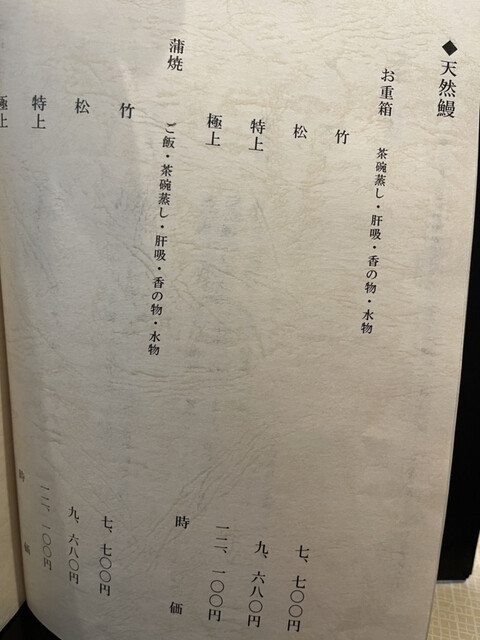 ◆天然鰻
お重箱 茶碗蒸し・肝吸・香の物・水物
竹 七、七〇〇円
松 九、六八〇円
特上 一二、一〇〇円
極上 時価
蒲焼 ご飯・茶碗蒸し・肝吸・香の物・水物
竹 七、七〇〇円
松 九、六八〇円
特上 一二、一〇〇円
極上 時価